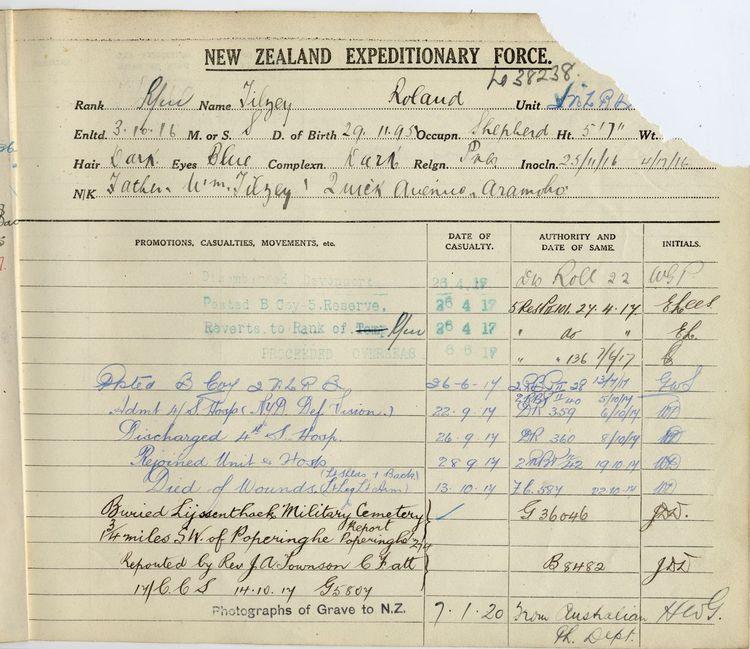 NEW ZEALAND EXPEDITIONARY FORCE.
38238.
Rank Rfn Name Tilzey Roland Unit
Enltd. 3.10.16 M. or S. S D. of Birth 29.11.95 Occupn. Shepherd Ht. 5'7" Wt.
Hair Dark Eyes Blue Complexn. Dark Relgn. Pres Inocln. 25/11/16 4/12/16
N/K Father. Wm. Tilzey Quick Avenue. Aramoho
PROMOTIONS, CASUALTIES, MOVEMENTS, ETC. DATE OF CASUALTY. AUTHORITY AND DATE OF SAME. INITIALS.
Disembarked Devonport 26.4.17 Roll 22
Posted B Coy-5.Reserve, 26 4 17 27.4.17
Reverts to Rank of Rfn 26 4 17 " do "
PROCEEDED OVERSEAS 6 6 17 " " 136 7/6/17
Posted B Coy 2 N Z R B 26-6-17 28 13/7/17
40 5/10/17
Admt 4/S Hosp (NYD Def Vision.) 22.9.17 DR 359 6/10/17
Discharged 4th S. Hosp. 26.9.17 DR 360 8/10/17
Rejoined Unit ex Hosp 28 9 17 42 19.10.17
Died of Wounds. 13.10.17 587 22.10.17
Buried Lijssenthoek Military Cemetery G 36046
3/4 miles S.W. of Poperinghe Report Poperinghe
Reported by Rev J.A Townson C F att B 8482
17/C.C S 14.10.17 G5807
Photographs of Grave to N.Z. 7.1.20 From Australian Ph. Dept. HWG.